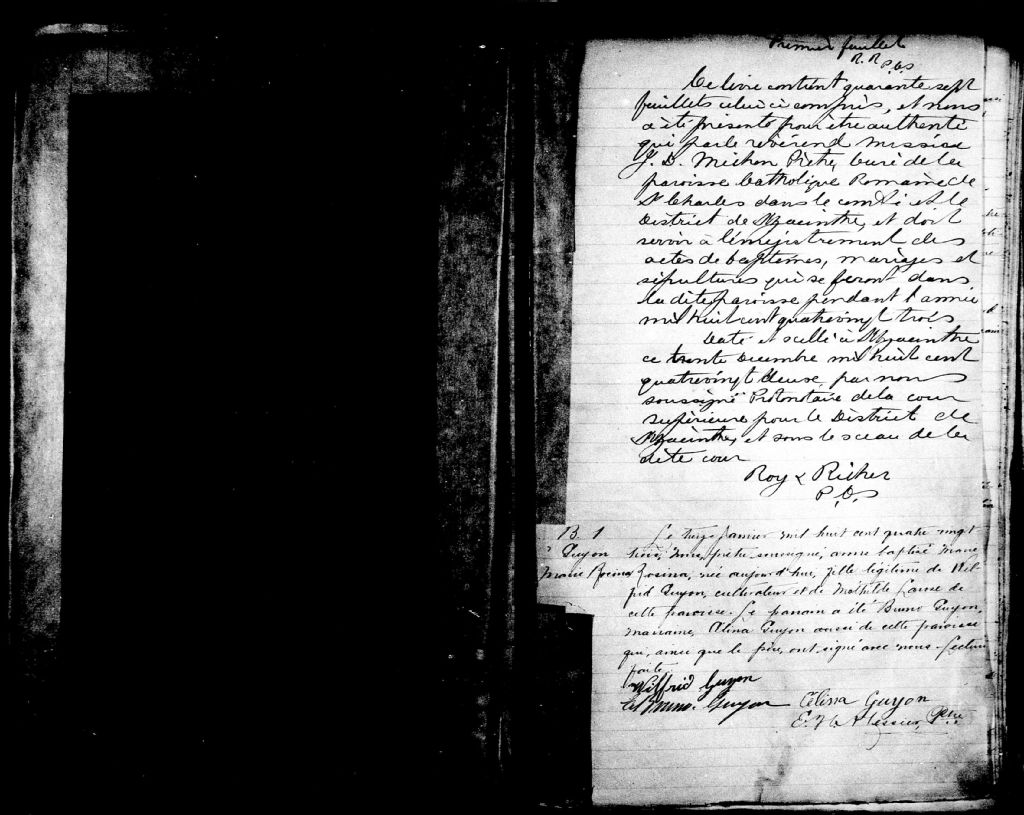 Premier feuillet
R. R P.C.S
Ce livre contient quarante sept
feuillets celui ci compris, et nous
a été présenté pour être authenti
qué par le révérend messire
J. D. Michon Prêtre, Curé de la
paroisse Catholique Romaine de
St Charles dans le comté et le
District de St Hyacinthe, et doit
servir à l'enregistrement des
actes de baptêmes, mariages et
sépultures qui se feront dans
la dite paroisse pendant l'année
mil huit cent quatrevingt trois
Daté et scellé à St Hyacinthe
ce trente Décembre mil huit cent
quatrevingt deux, par nous
soussigné Protonotaire de la cour
supérieure pour le District de
St Hyacinthe, et sous le sceau de la
dite cour
Roy & Richer
P.C.S
B. 1
Guyon
Marie Rosina
Le janvier mil huit cent quatre vingt
trois, nous, prêtre soussigné, avons baptisé Marie
Rosina, née aujourd'hui, fille légitime de Wil
frid Guyon, cultivateur et de Mathilde de
cette paroisse. Le parrain a été Bruno Guyon,
marraine, Célina Guyon aussi de cette paroisse
qui, ainsi que le père, ont signé avec nous. Lecture
faite.
Wilfrid Guyon
Bruno Guyon Célina Guyon
Ptre